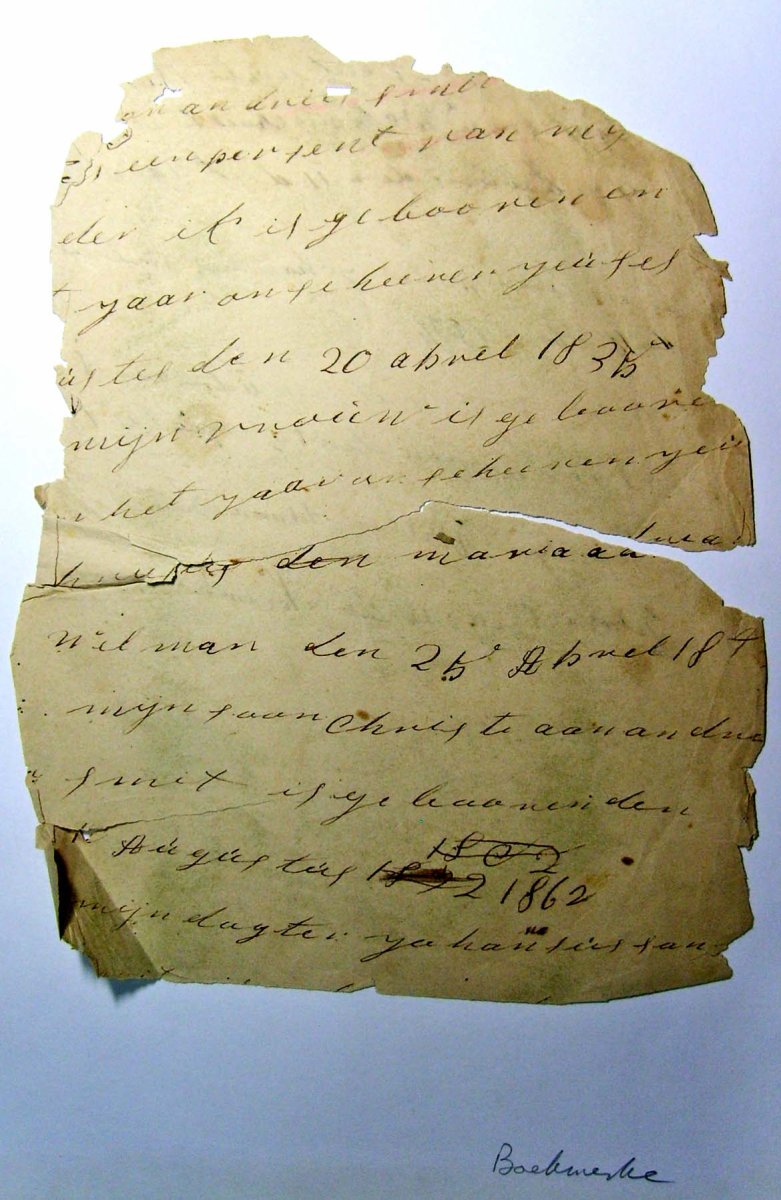 an andries smit
is een persent van my
der ik is gebooren en
t yaar onse heeren yeuses
us tes den 20 aprel 1835
mijn vrouw is geboore
n het yaar onse heeren yeu
den maria ad
wilman den 25 Aprel 184
mijn soon Christe aan andri
smit is gebooren den
Augustus 1862
mijn dogter yohan
Boekmerke